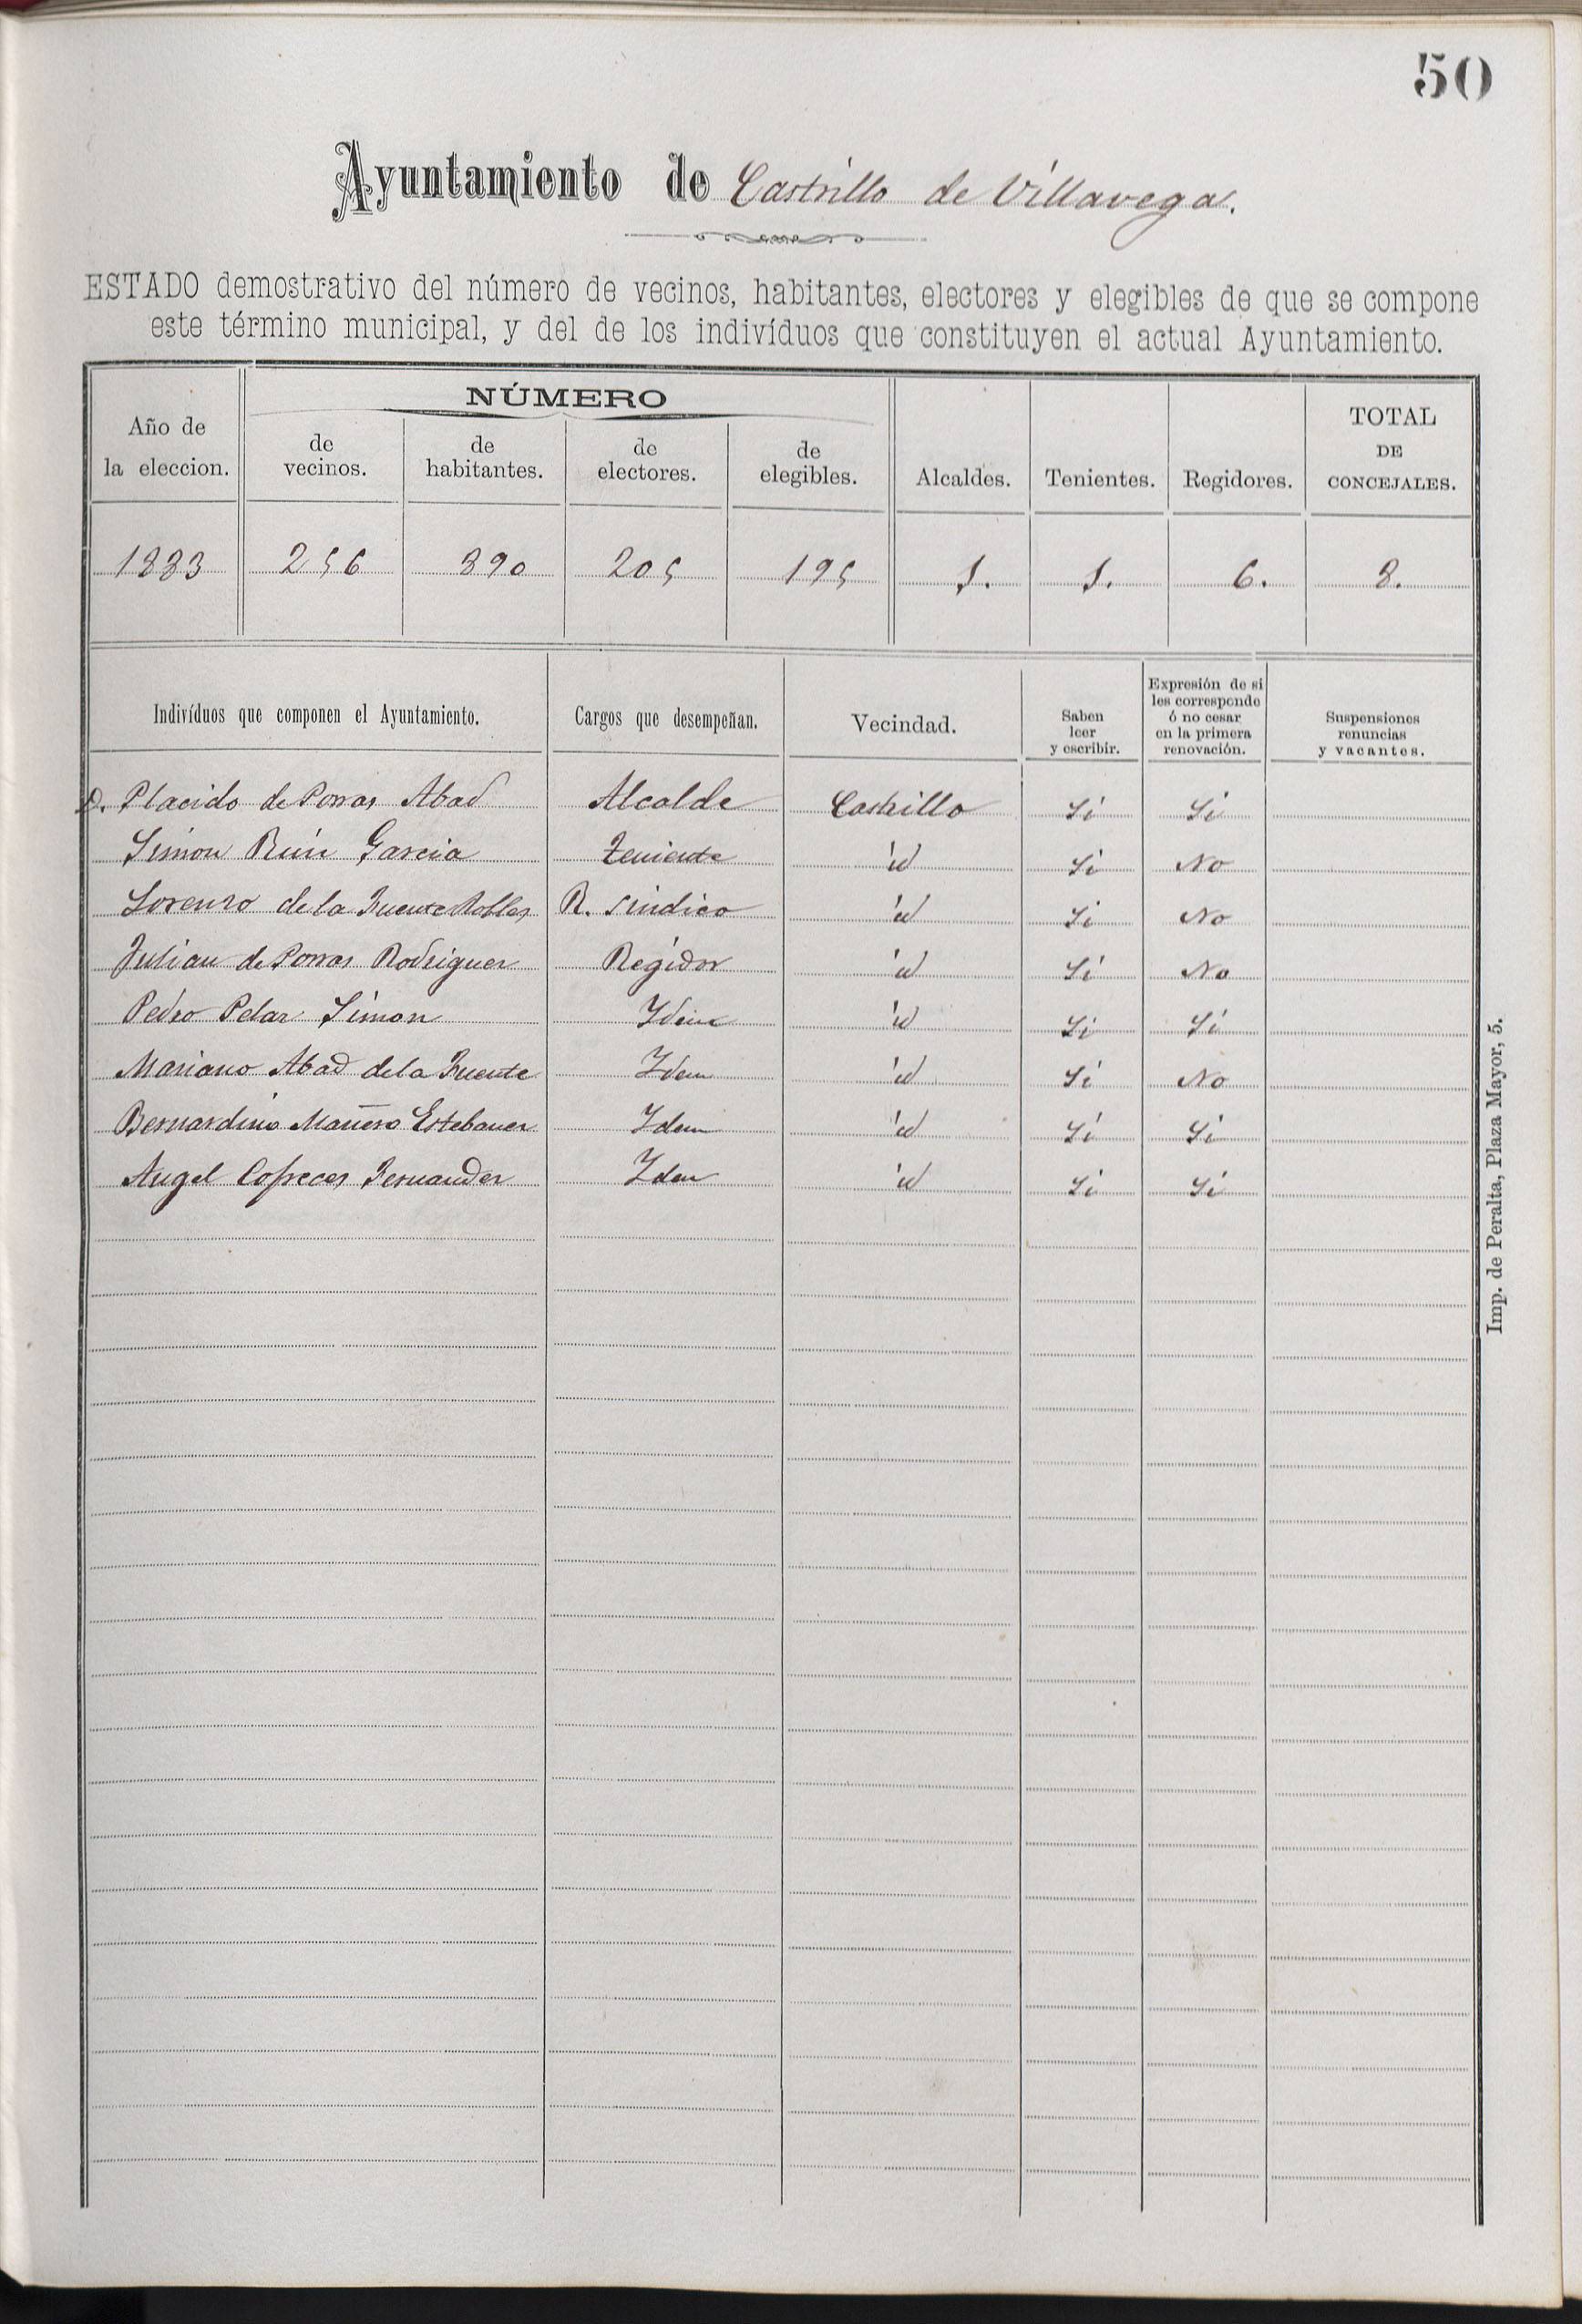 50
Ayuntamiento de Castrillo de Villavega.
ESTADO demostrativo del número de vecinos, habitantes, electores y elegibles de que se compone
este término municipal, y del de los indivíduos que constituyen el actual Ayuntamiento.
Año de la eleccion. NÚMERO de vecinos. de habitantes. de electores. de elegibles. Alcaldes. Tenientes. Regidores. TOTAL DE CONCEJALES.
1883 256 890 205 195 1. 1. 6. 8.
Indivíduos que componen el Ayuntamiento. Cargos que desempeñan. Vecindad. Saben leer y escribir. Expresión de si les corresponde ó no cesar en la primera renovación. Suspensiones renuncias y vacantes.
D. Placido de Porras Abad Alcalde Castrillo Si Si
Simon Ruiz Garcia Teniente id Si No
Lorenzo de la Fuente Robles R. sindico id Si No
Julian de Porras Rodriguez Regidor id Si No
Pedro Pelaz Simon Idem id Si Si
Mariano Abad de la Fuente Idem id Si No
Bernardino Mañero Estebanez Idem id Si Si
Angel Cofreces Fernandez Idem id Si Si
Imp. de Peralta, Plaza Mayor, 5.